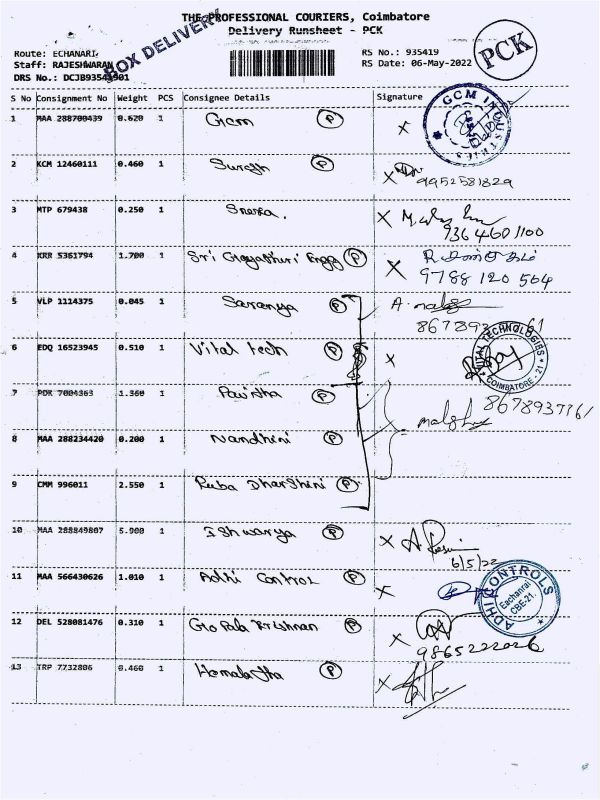 THE PROFESSIONAL COURIERS, Coimbatore
Delivery Runsheet - PCK
BOX DELIVERY
PCK
Route: ECHANARI
Staff: RAJESHWARAN
RS No.: 935419
RS Date: 06-May-2022
S No Consignment No Weight PCS Consignee Details Signature
1 MAA 288700439 0.620 1 Gcm P X
GCM INDUSTRIES
2 KCM 12460111 0.460 1 P X
9952581829
3 MTP 679438 0.250 1 Sneka. X
9364601100
4 KRR 5361794 1.700 1 Sri Gayathiri Engg P X
9788 120 564
5 VLP 1114375 0.045 1 Saranya P
6 EDQ 16523945 0.510 1 Vital tech P X
VITAL TECHNOLOGIES
COIMBATORE - 21
7 PDK 7004363 1.360 1 Pavitha P
8678937761
8 MAA 288234420 0.200 1 Nandhini P
9 CMM 996011 2.550 1 Ruba Dharshini P
10 MAA 288849807 5.900 1 Ishwarya P X
6/5/22
11 MAA 566430626 1.010 1 Adhi Control P X
ADHI CONTROLS
Eachanari
CBE-21.
12 DEL 528081476 0.310 1 Gopala Krishnan P X
9865222026
13 TRP 7732806 0.460 1 Hemalatha P X